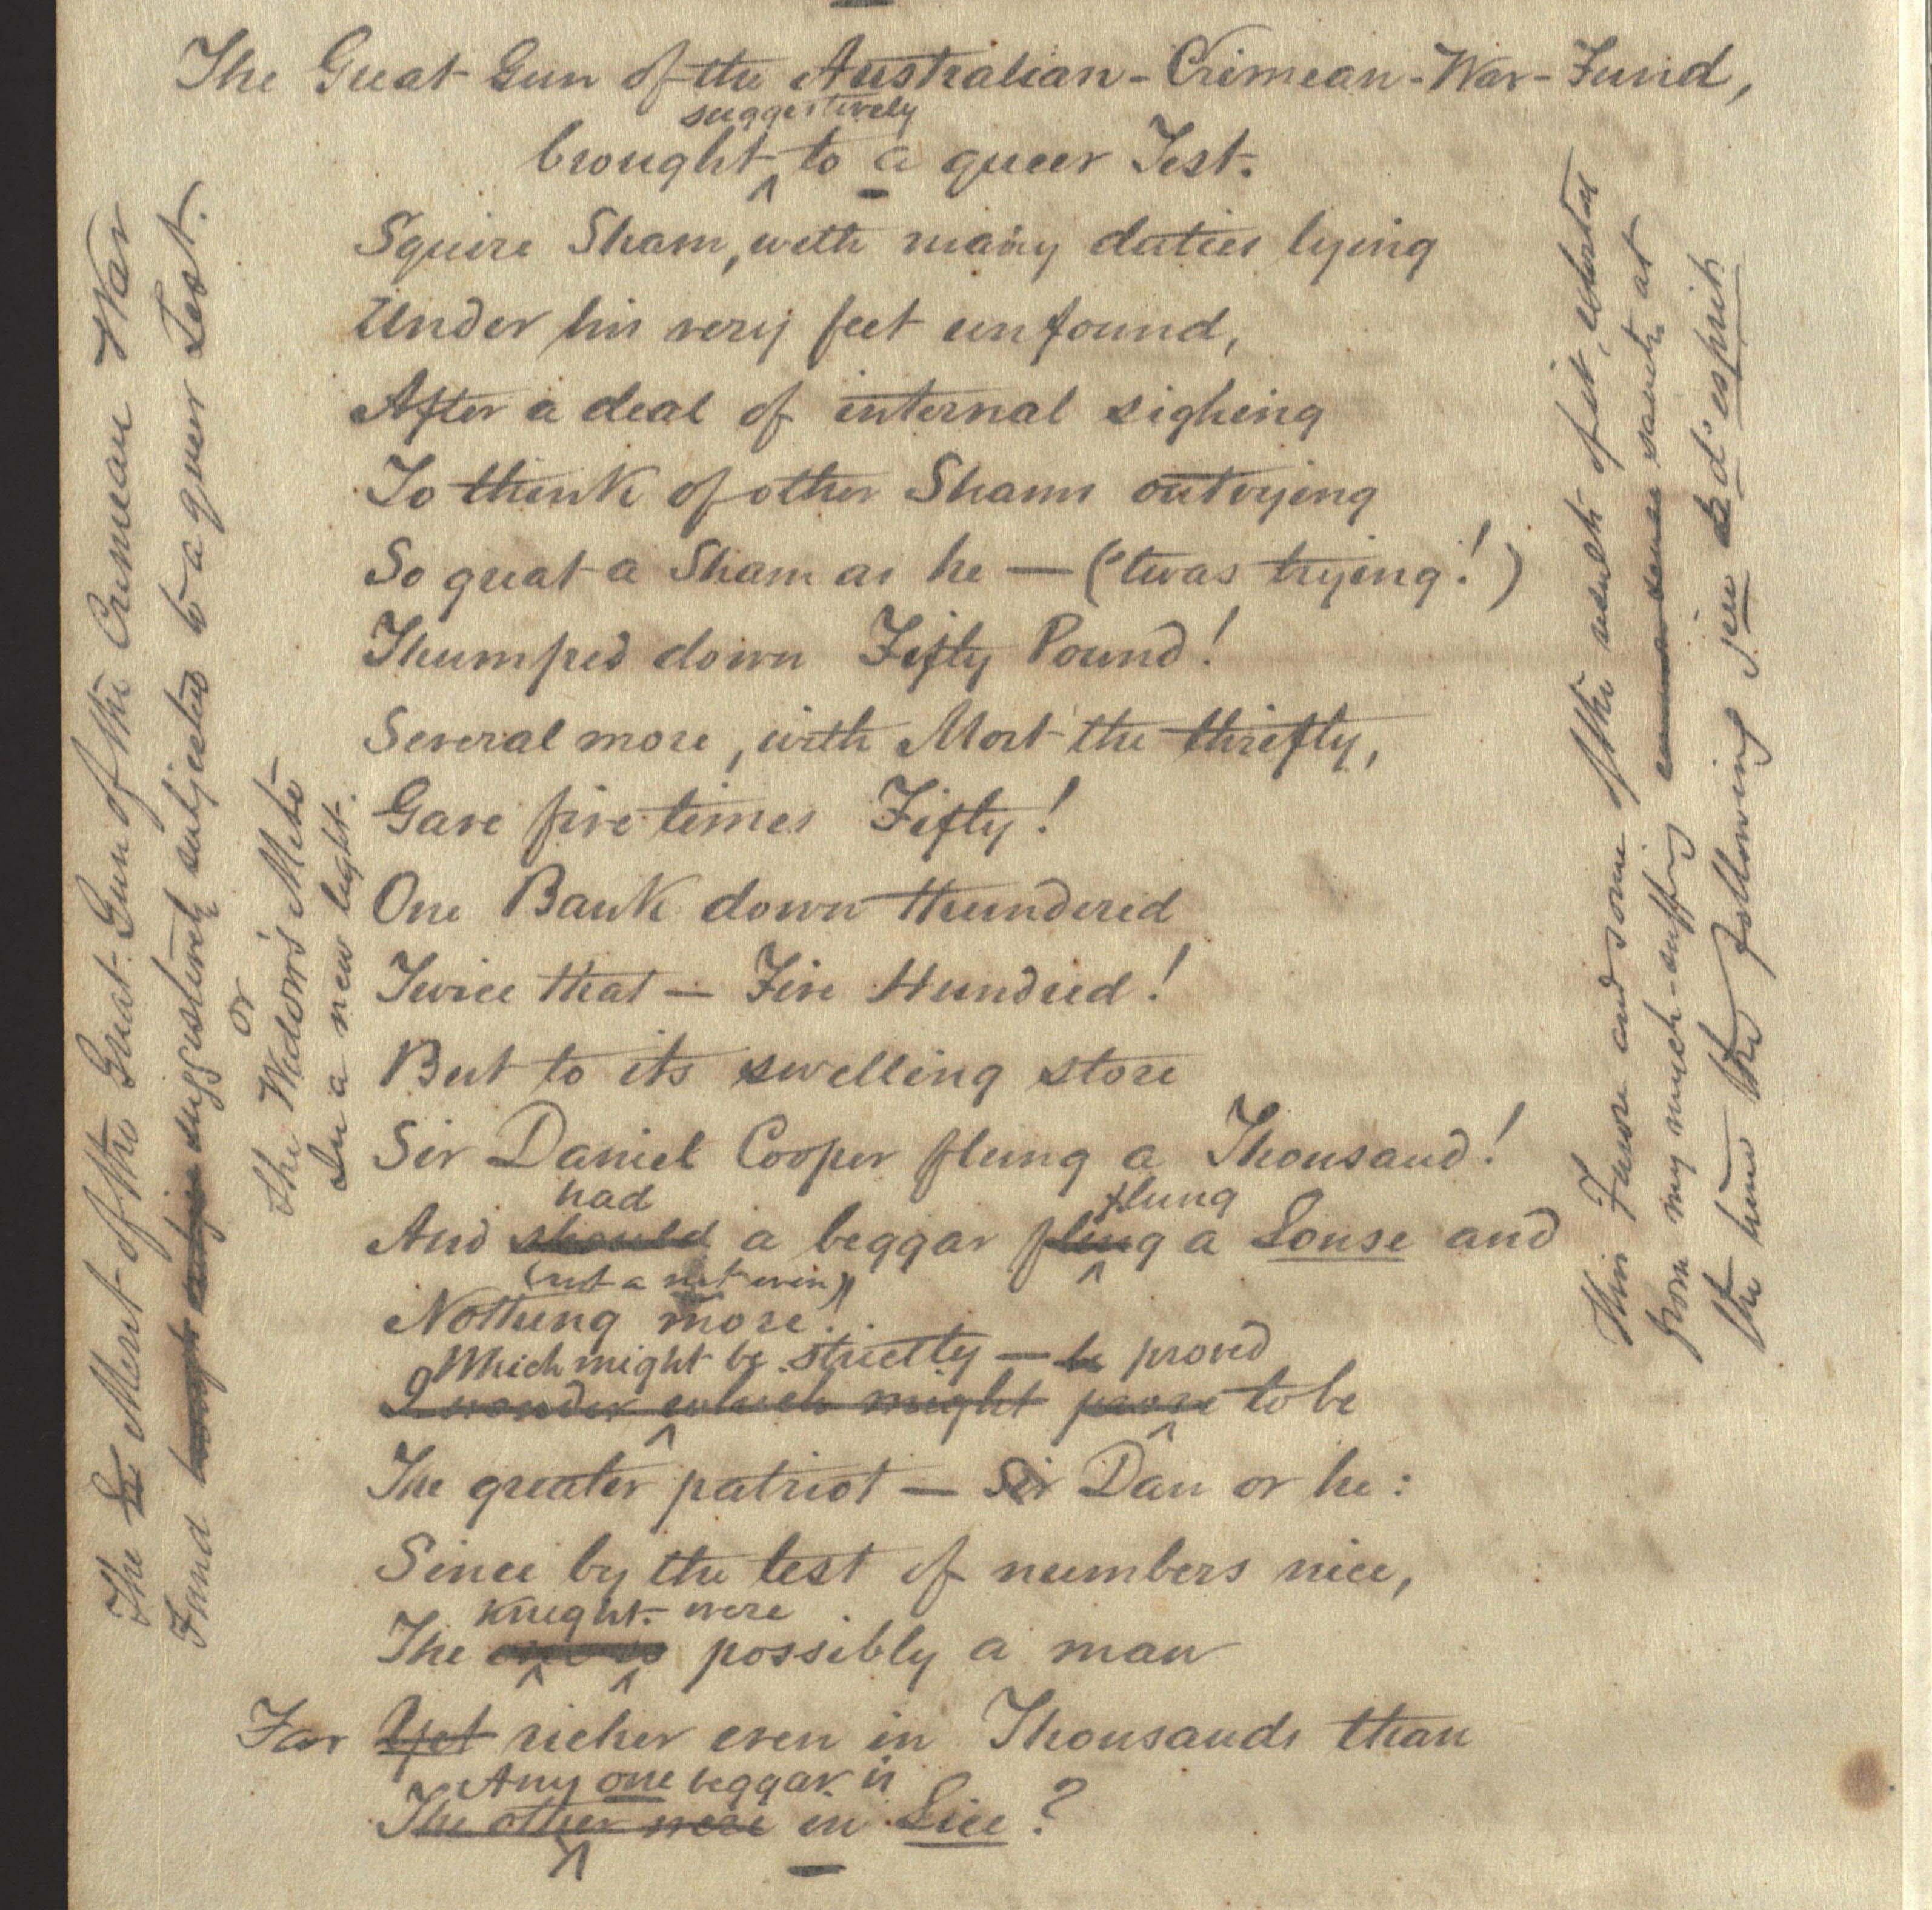 The Great Gun of the Australian-Crimean-War-Fund,
suggestively
brought to a queer Test.
Squire Sham, with many duties lying
Under his very feet unfound,
After a deal of internal sighing
To think of other Shams outvying
So great a Sham as he — ('twas trying!)
Thumped down Fifty Pound!
Several more, with Mort the thrifty,
Gave five times Fifty!
One Bank down thundered
Twice that — Five Hundred!
But to its swelling store
Sir Daniel Cooper flung a Thousand!
had flung
And should a beggar fling a Louse and
(not a nit even)
Nothing more!
Which might be strictly — be proved
I wonder which might prove to be
The greater patriot — Sir Dan or he:
Since by the test of numbers nice,
Knight were
The possibly a man
Far Yet richer even in Thousands than
Any one beggar is
The other were in Lice?
The Merit of the Great Gun of the Crimean War
Fund brought suggestively subjected to a queer Test.
or
The Widow's Mite
In a new light.
This Fuss and some of the sort of it, extorted
from my much-suffering sense at
the time the following jeu d'esprit